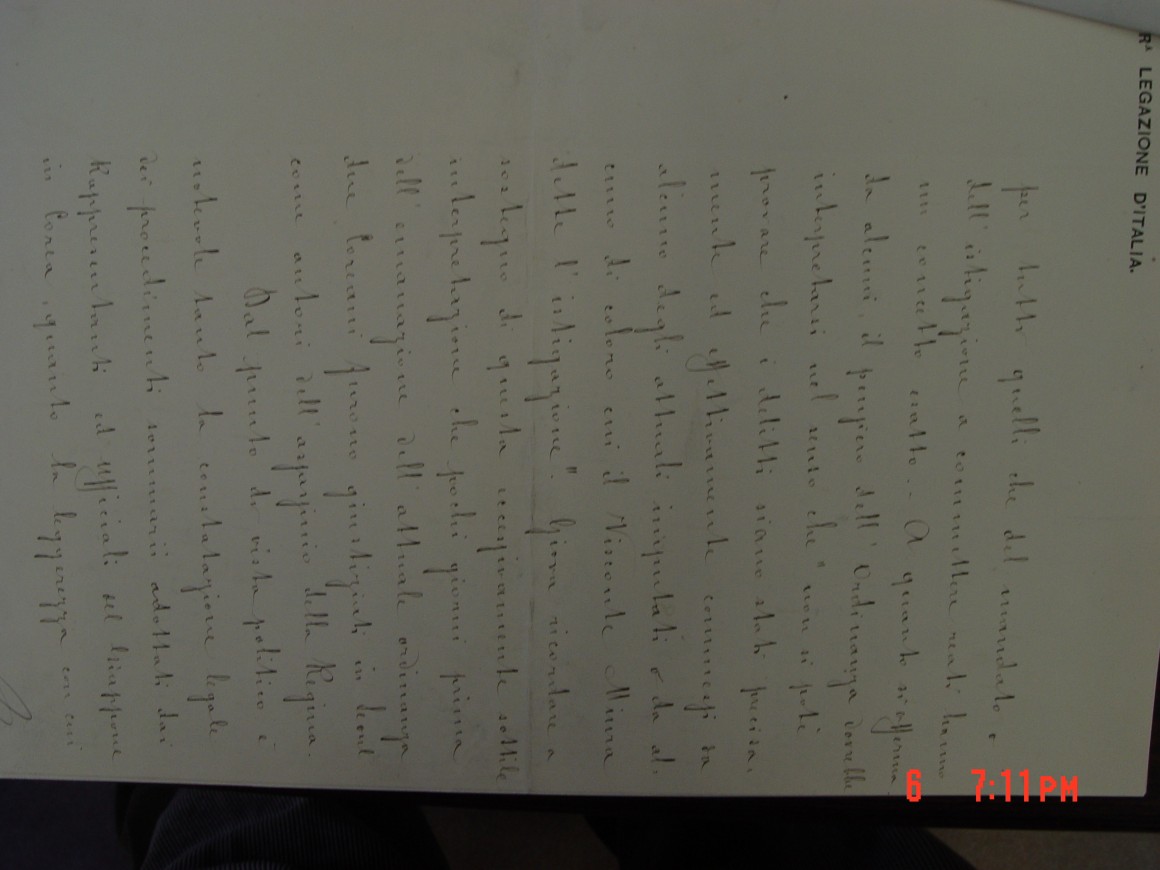 Rª LEGAZIONE D'ITALIA.
per tutti quelli che del mandato o
dell'istigazione a commettere reati hanno
un concetto esatto. – A quanto si afferma
da alcuni, il pensiero dell'Ordinanza dovrebbe
interpretarsi nel senso che "non si potè
provare che i delitti siano stati precisa-
mente ed effettivamente commessi da
alcuno degli attuali imputati o da al-
cuno di coloro cui il Visconte Miura
dette l'istigazione". Giova ricordare a
sostegno di questa eccessivamente sottile
interpretazione che pochi giorni prima
dell'emanazione dell'attuale ordinanza
due Coreani furono giustiziati in Seoul
come autori dell'assassinio della Regina.
Dal punto di vista politico è
notevole tanto la constatazione legale
dei procedimenti sommarii adottati dai
Rappresentanti ed Ufficiali del Giappone
in Corea, quanto la leggerezza con cui
6 7:11PM